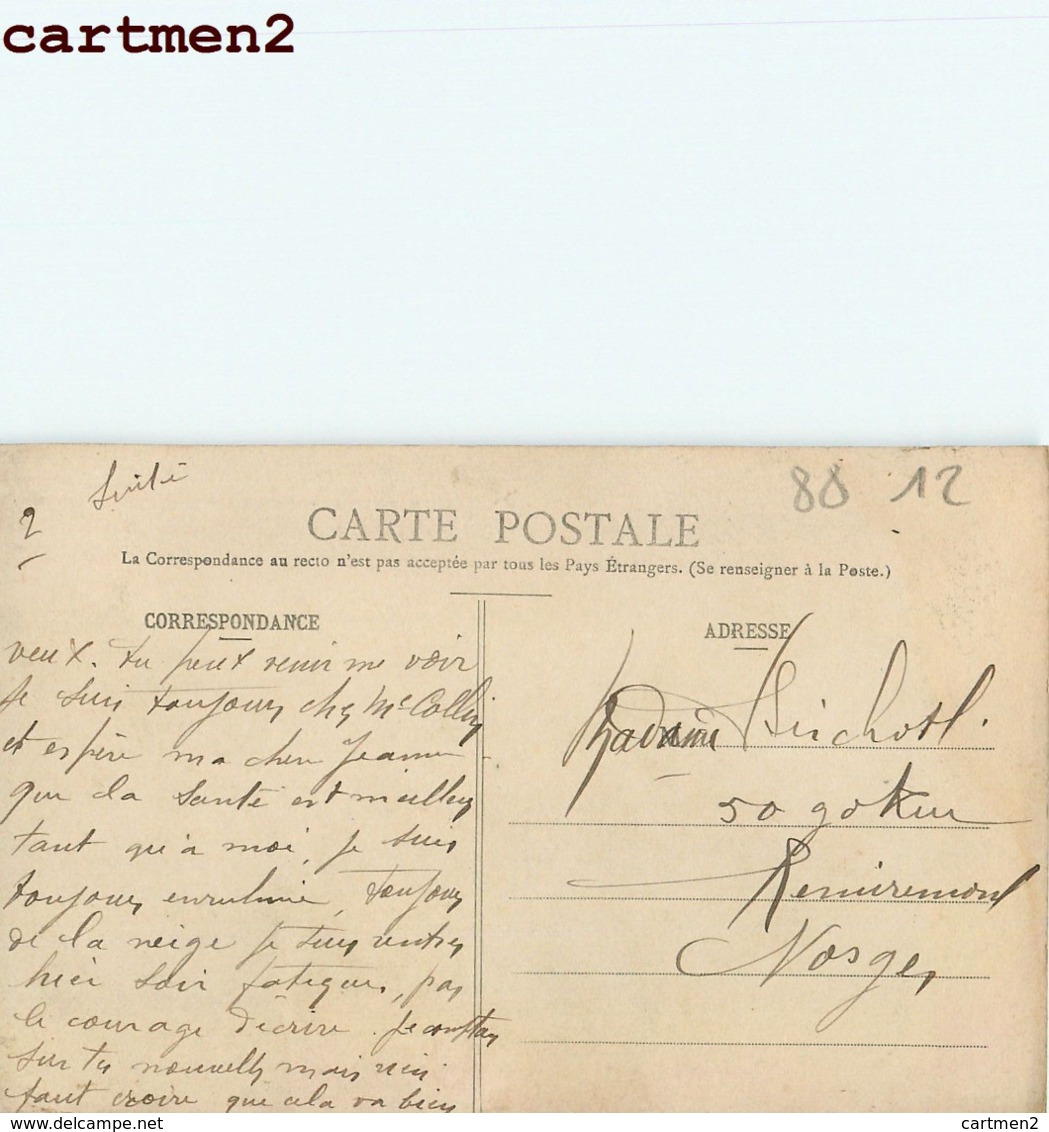 cartmen2
Suite
88 12
2
CARTE POSTALE
La Correspondance au recto n'est pas acceptée par tous les Pays Étrangers. (Se renseigner à la Poste.)
CORRESPONDANCE
veux. tu peux venir me voir
Je suis toujours chez Me Collin
et espère ma chère Jeanne
que la santé est meilleur
tant qu'à moi, je suis
toujours enrhumé, toujours
de la neige je suis rentré
hier soir fatigué, pas
le courage d'écrire. Je comptais
sur tes nouvelles mais rien
faut croire que cela va bien
ADRESSE
Madame
50
Remiremont
Vosges
cartmen2